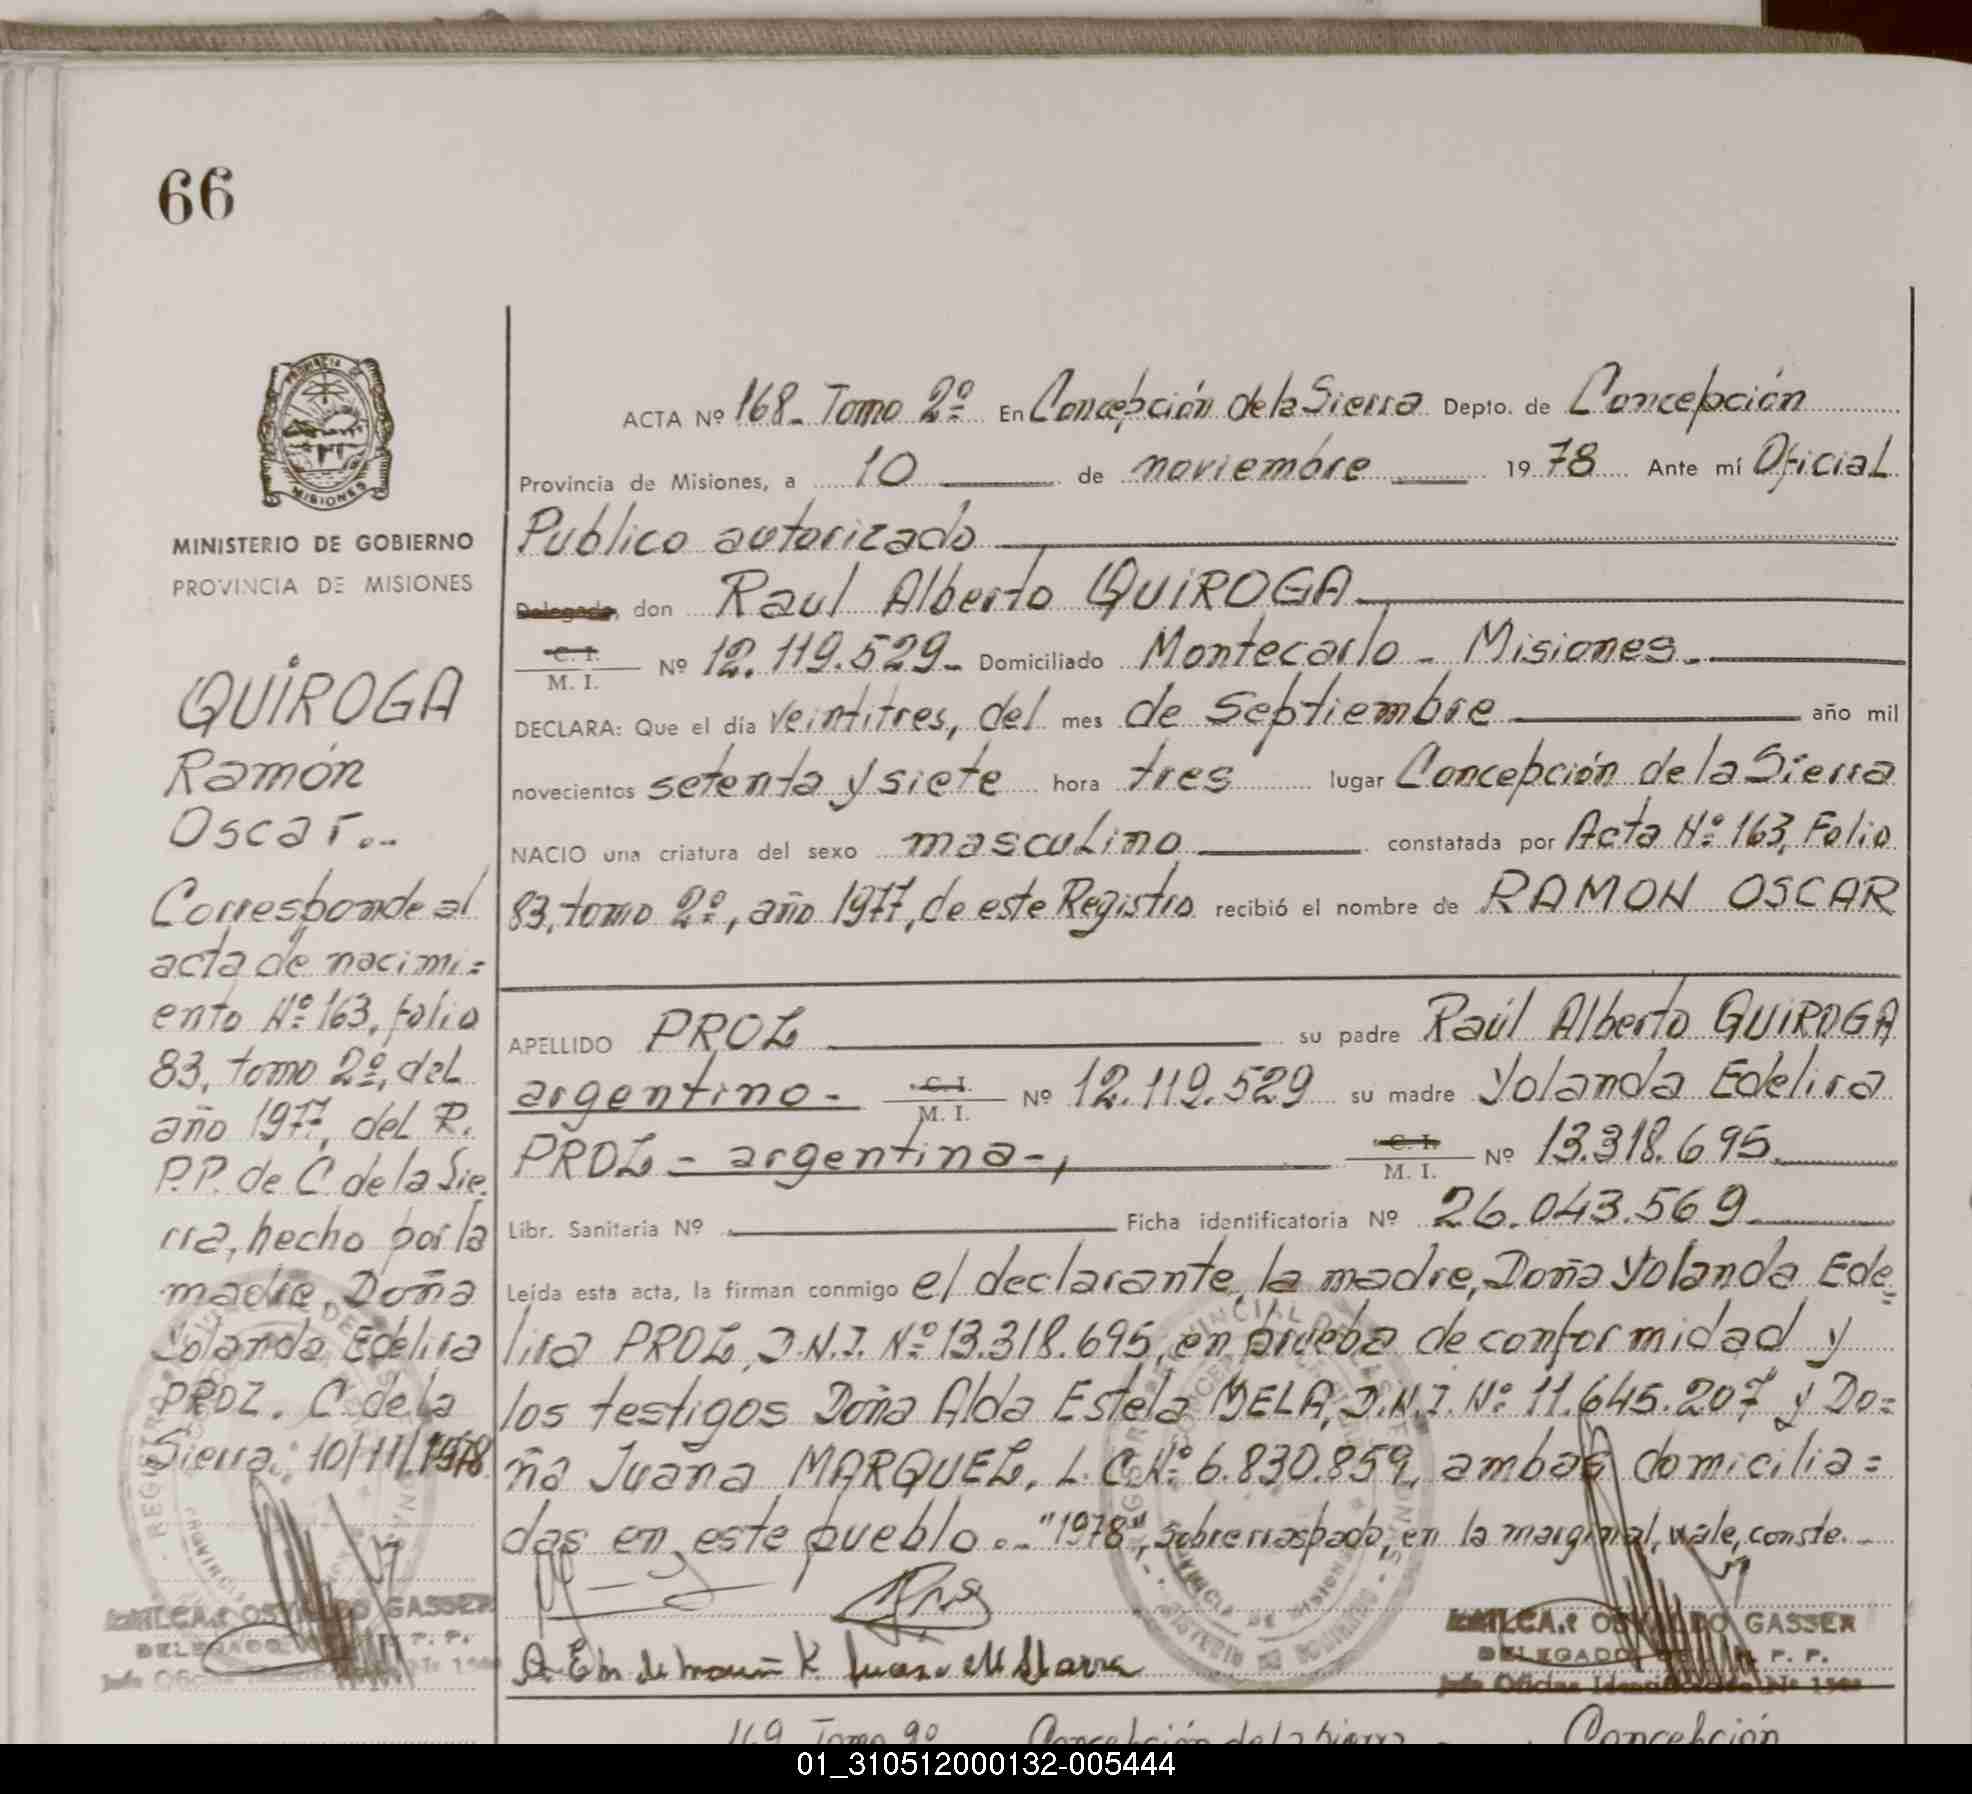 66
PROVINCIA DE
MISIONES
MINISTERIO DE GOBIERNO
PROVINCIA DE MISIONES
QUIROGA
Ramón
Oscar..-
Corresponde al
acta de nacimi=
ento Nº 163, folio
83, tomo 2º, del
año 1977, del R.
P.P. de C. de la Sie
rra, hecho por la
madre, Doña
Yolanda Edelira
PROZ. C. de la
Sierra: 10/11/1978
ACTA Nº 168- Tomo 2º En Concepción de la Sierra Depto. de Concepción
Provincia de Misiones, a 10 de noviembre 1978 Ante mí Oficial
Publico autorizado
Delegado, don Raul Alberto QUIROGA
C. I. / M. I. Nº 12.119.529- Domiciliado Montecarlo - Misiones.-
DECLARA: Que el día veintitres, del mes de septiembre año mil
novecientos setenta y siete hora tres lugar Concepción de la Sierra
NACIO una criatura del sexo masculino constatada por Acta Nº 163, Folio
83, tomo 2º, año 1977, de este Registro recibió el nombre de RAMON OSCAR
APELLIDO PROZ su padre Raúl Alberto QUIROGA
argentino- C. I. / M. I. Nº 12.119.529 su madre Yolanda Edelira
PROZ - argentina-, C. I. / M. I. Nº 13.318.695
Libr. Sanitaria Nº Ficha identificatoria Nº 26.043.569
Leída esta acta, la firman conmigo el declarante, la madre, Doña Yolanda Ede=
lira PROZ, D.N.I. Nº 13.318.695, en prueba de conformidad y
los testigos Doña Alda Estela MELA, D.N.I. Nº 11.645.207 y Do=
ña Juana MARQUEZ, L.C. Nº 6.830.859, ambas domicilia=
das en este pueblo.- "1978", sobrerraspado, en la marginal, vale, conste.-
OSVALDO GASSER
DELEGADO R. P. P.
Jefe Oficina Identificación Nº
OSVALDO GASSER
DELEGADO P. P.
169 Tomo 2º Concepción de la Sierra Concepción
01_310512000132-005444